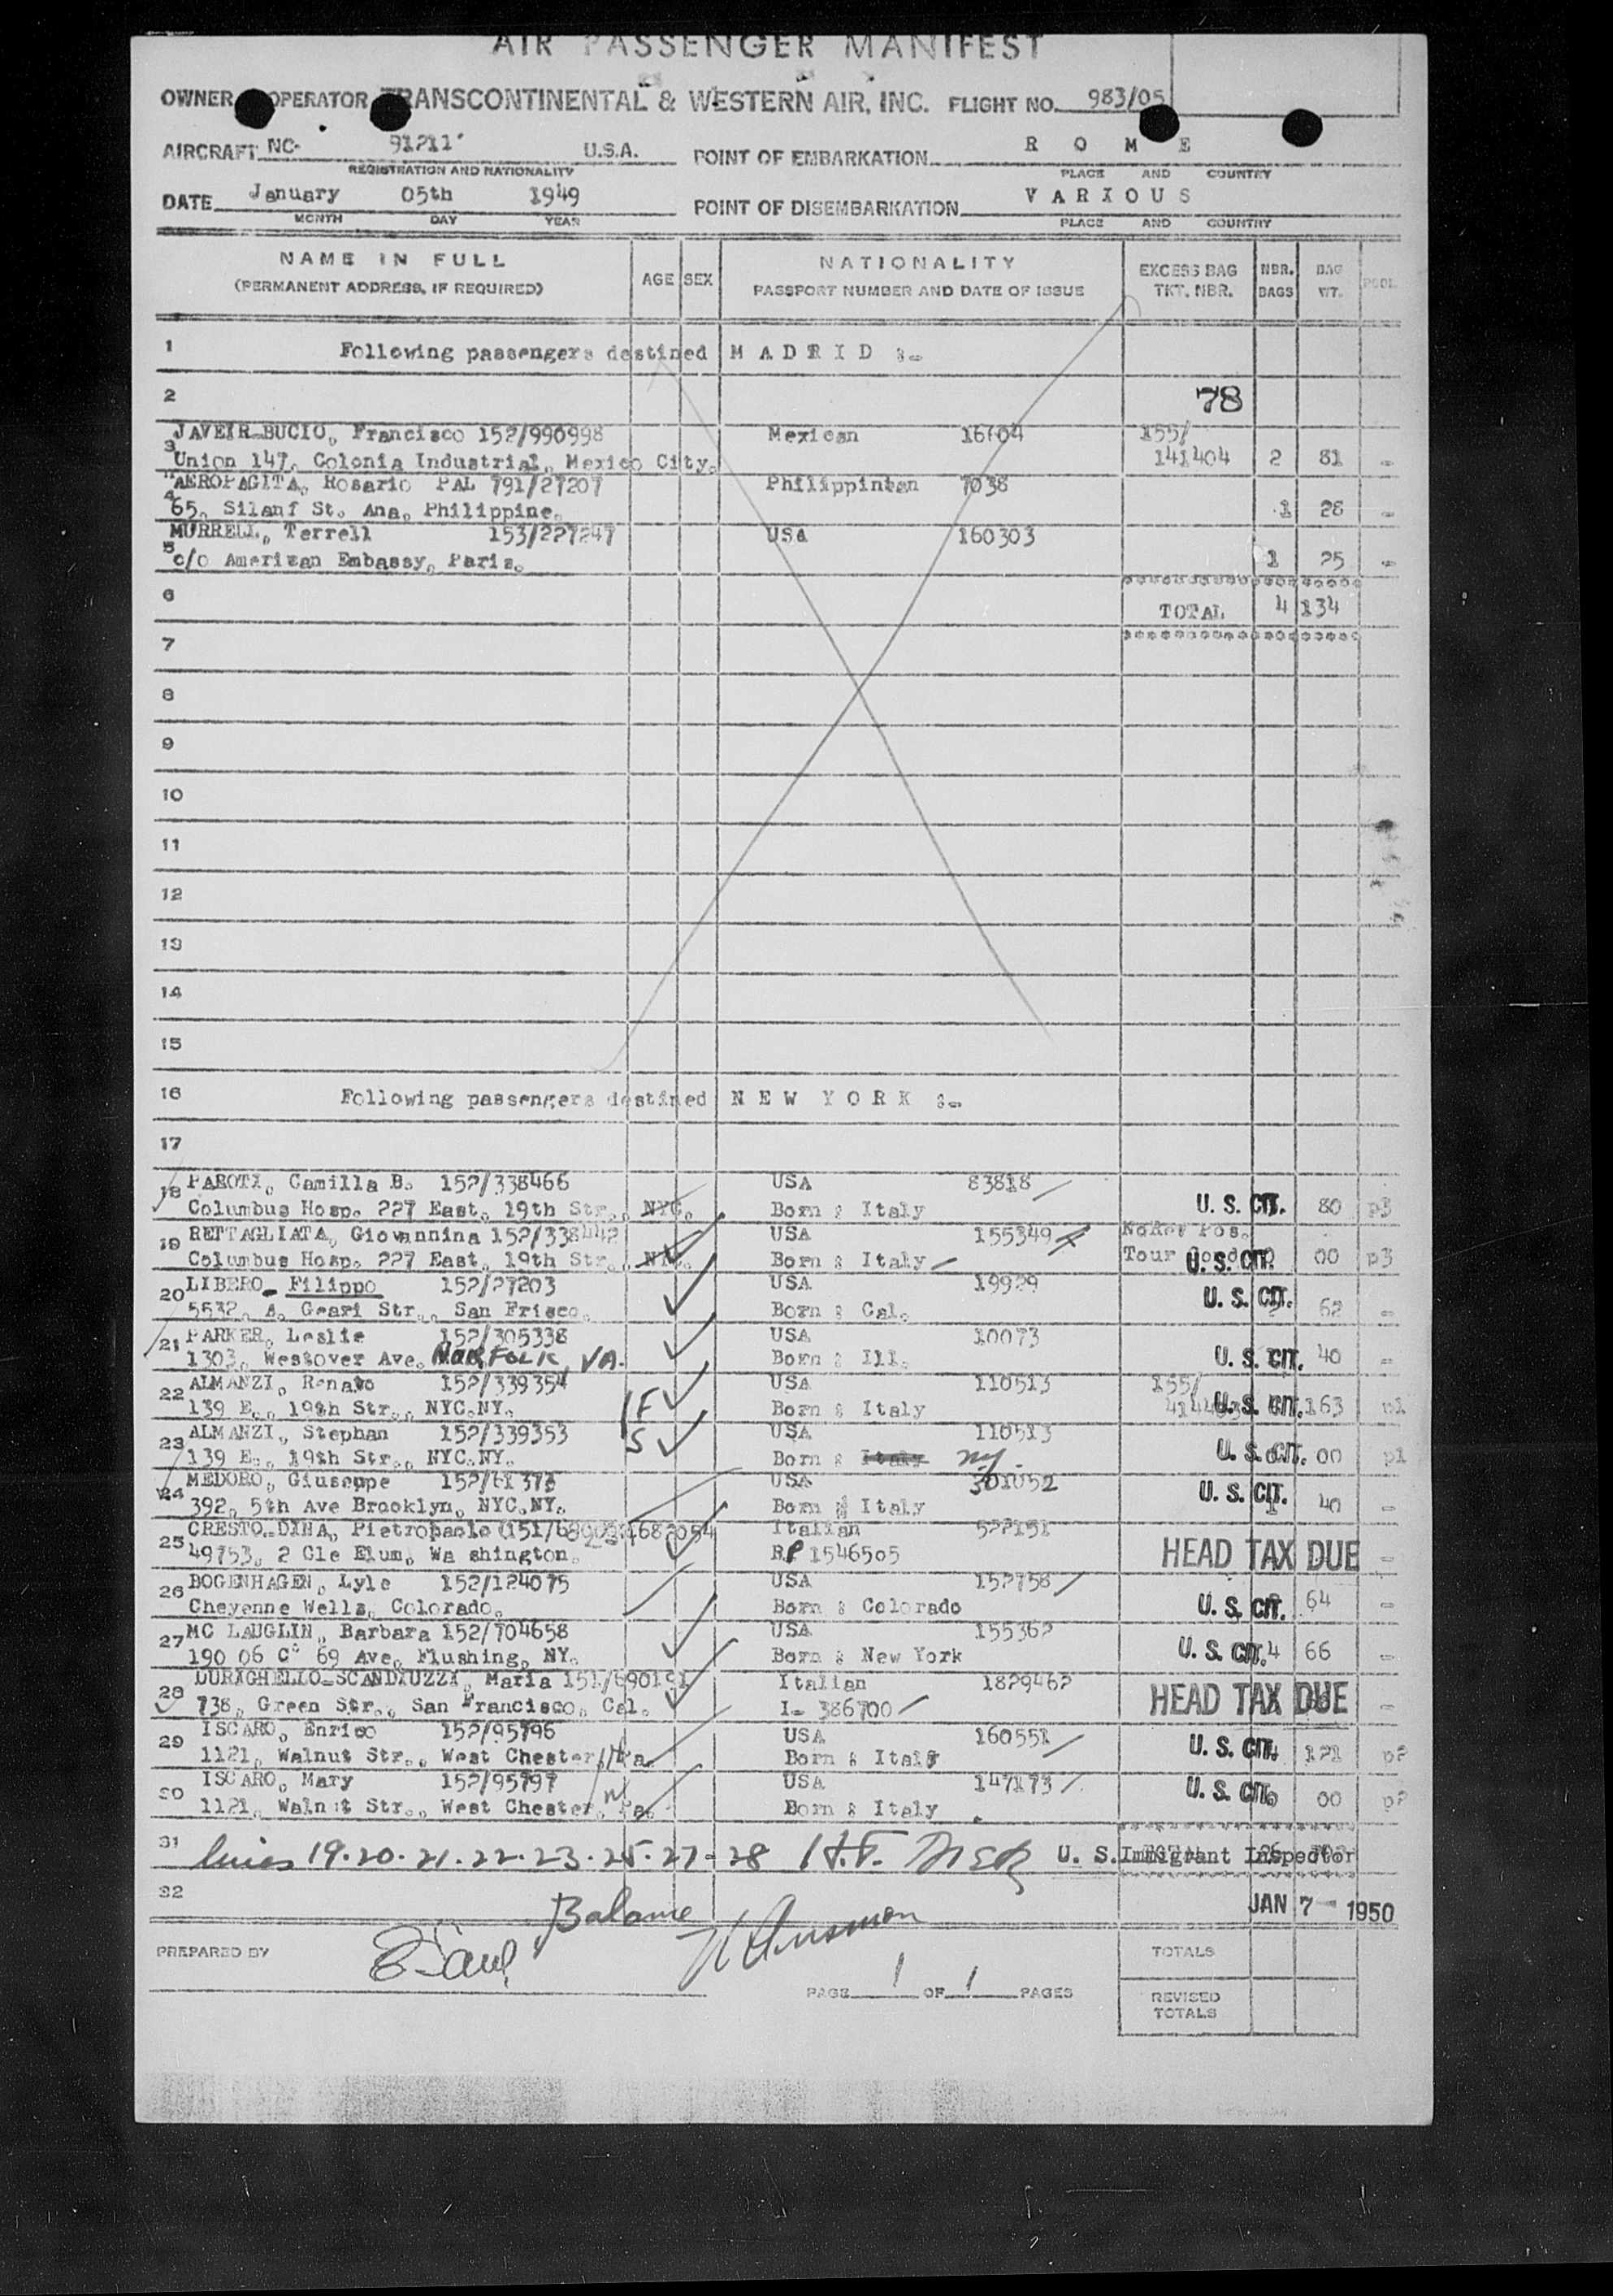 AIR PASSENGER MANIFEST
OWNER OPERATOR TRANSCONTINENTAL & WESTERN AIR, INC. FLIGHT NO. 983/05
AIRCRAFT NC- 91211 U.S.A. POINT OF EMBARKATION R O M E
REGISTRATION AND NATIONALITY PLACE AND COUNTRY
DATE January 05th 1949 POINT OF DISEMBARKATION V A R I O U S
MONTH DAY YEAR PLACE AND COUNTRY
NAME IN FULL AGE SEX NATIONALITY EXCESS BAG NBR. BAG
(PERMANENT ADDRESS, IF REQUIRED) PASSPORT NUMBER AND DATE OF ISSUE TKT. NBR. BAGS WT.
1 Following passengers destined M A D R I D :-
2 78
JAVEIR-BUCIO, Francisco 152/990998 Mexican 155/
3 Union 147, Colonia Industrial, Mexico City. 141404 2 81 -
AEROPAGITA, Rosario PAL 791/27207 Philippinean 7038
4 65, Silanf St. Ana, Philippine. 1 28 -
MURRELL, Terrell 153/227247 USA 160303
5 c/o Amerizan Embassy, Paris. 1 25 -
6 TOTAL 4 134
7
8
9
10
11
12
13
14
15
16 Following passengers destined N E W Y O R K :-
17
18 PAROTX, Camilla B. 152/338466 USA 83818
Columbus Hosp. 227 East, 19th Str., NYC. Born : Italy U. S. CIT. 80 p3
19 RETTAGLIATA, Giovannina 152/338442 USA 155349
Columbus Hosp. 227 East, 19th Str., NYC. Born : Italy Tour U. S. CIT. 00 p3
20 LIBERO- Filippo 152/27203 USA 19929
5532, A. Geari Str., San Frisco. Born : Cal. U. S. CIT. 62 -
21 PARKER, Leslie 152/305338 USA 10073
1303, Westover Ave. NORFOLK, VA. Born : Ill. U. S. CIT. 40 -
22 ALMANZI, Renato 152/339354 USA 110513 155/
139 E., 19th Str., NYC.NY. F Born : Italy U. S. CIT. 163 p1
23 ALMANZI, Stephan 152/339353 USA 110513
139 E., 19th Str., NYC.NY. S Born : Italy NY. U. S. CIT. 00 p1
24 MEDORO, Giuseppe 152/61373 USA 301052
392, 5th Ave Brooklyn, NYC.NY. Born : Italy U. S. CIT. 1 40 -
25 CRESTO-DINA, Pietropaolo Italian 522151
49753, 2 Cle Elum, Wa shington. RP 1546505 HEAD TAX DUE -
26 BOGENHAGEN, Lyle 152/124075 USA 152758
Cheyenne Wells, Colorado. Born : Colorado U. S. CIT. 64 -
27 MC LAUGLIN, Barbara 152/704658 USA 155362
190 06 C° 69 Ave, Flushing, NY. Born : New York U. S. CIT. 4 66 -
28 DURIGHELLO-SCANDIUZZI, Maria 151/690191 Italian 1829462
738, Green Str., San Francisco, Cal. I- 386700 HEAD TAX DUE -
29 ISCARO, Enrico 152/95796 USA 160551
1121, Walnut Str., West Chester, Pa. Born : Italy U. S. CIT. 121 p2
30 ISCARO, Mary 152/95797 USA 147173
1121, Walnut Str., West Chester, Pa. Born : Italy U. S. CIT. 00 p2
31 lines 19·20·21·22·23·25·27-28 H.F. U. S. Immigrant Inspector
32 Balance JAN 7- 1950
PREPARED BY TOTALS
PAGE 1 OF 1 PAGES REVISED
TOTALS